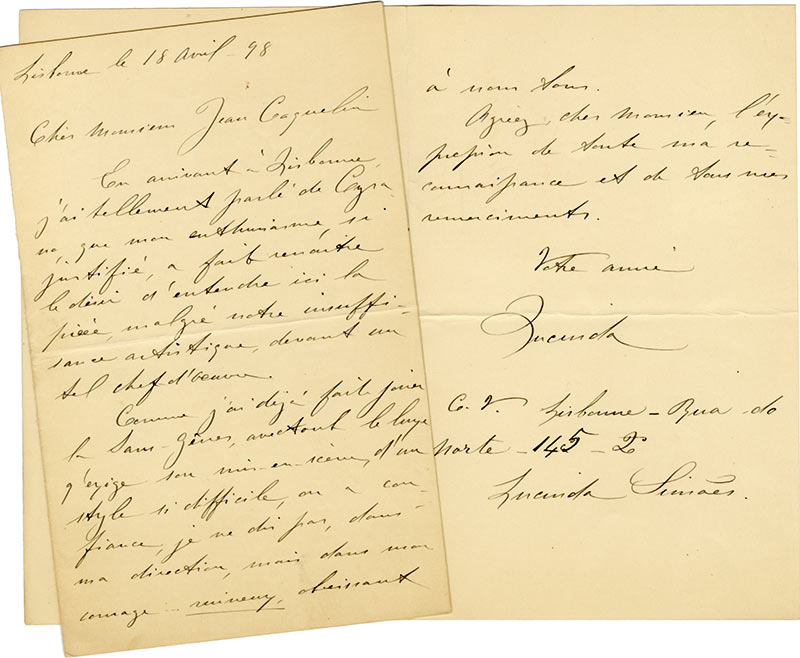 Lisbonne le 18 Avril - 98
Cher Monsieur Jean Coquelin
En arrivant à Lisbonne,
j'ai tellement parlé de Cyra-
no, que mon enthusiasme, si
justifié, a fait renaitre
le désir d'entendre ici la
pièce, malgré notre insuffi-
sance artistique, devant un
tel chef d'oeuvre.
Comme j'ai déjà fait jouer
la Sans-Gênes, avec tout le luxe
q'exige son mis-en-scène, d'un
style si difficile, on a con-
fiance, je ne dis pas, dans
ma direction, mais dans mon
courage obeissant
à nous tous.
Agréez, cher Monsieur, l'ex-
pression de toute ma re-
connaissance et de tous mes
remerciments.
Votre amie
Lucinda
C. V. Lisbonne - Rua do
Norte - 145 - 2º
Lucinda Simões.